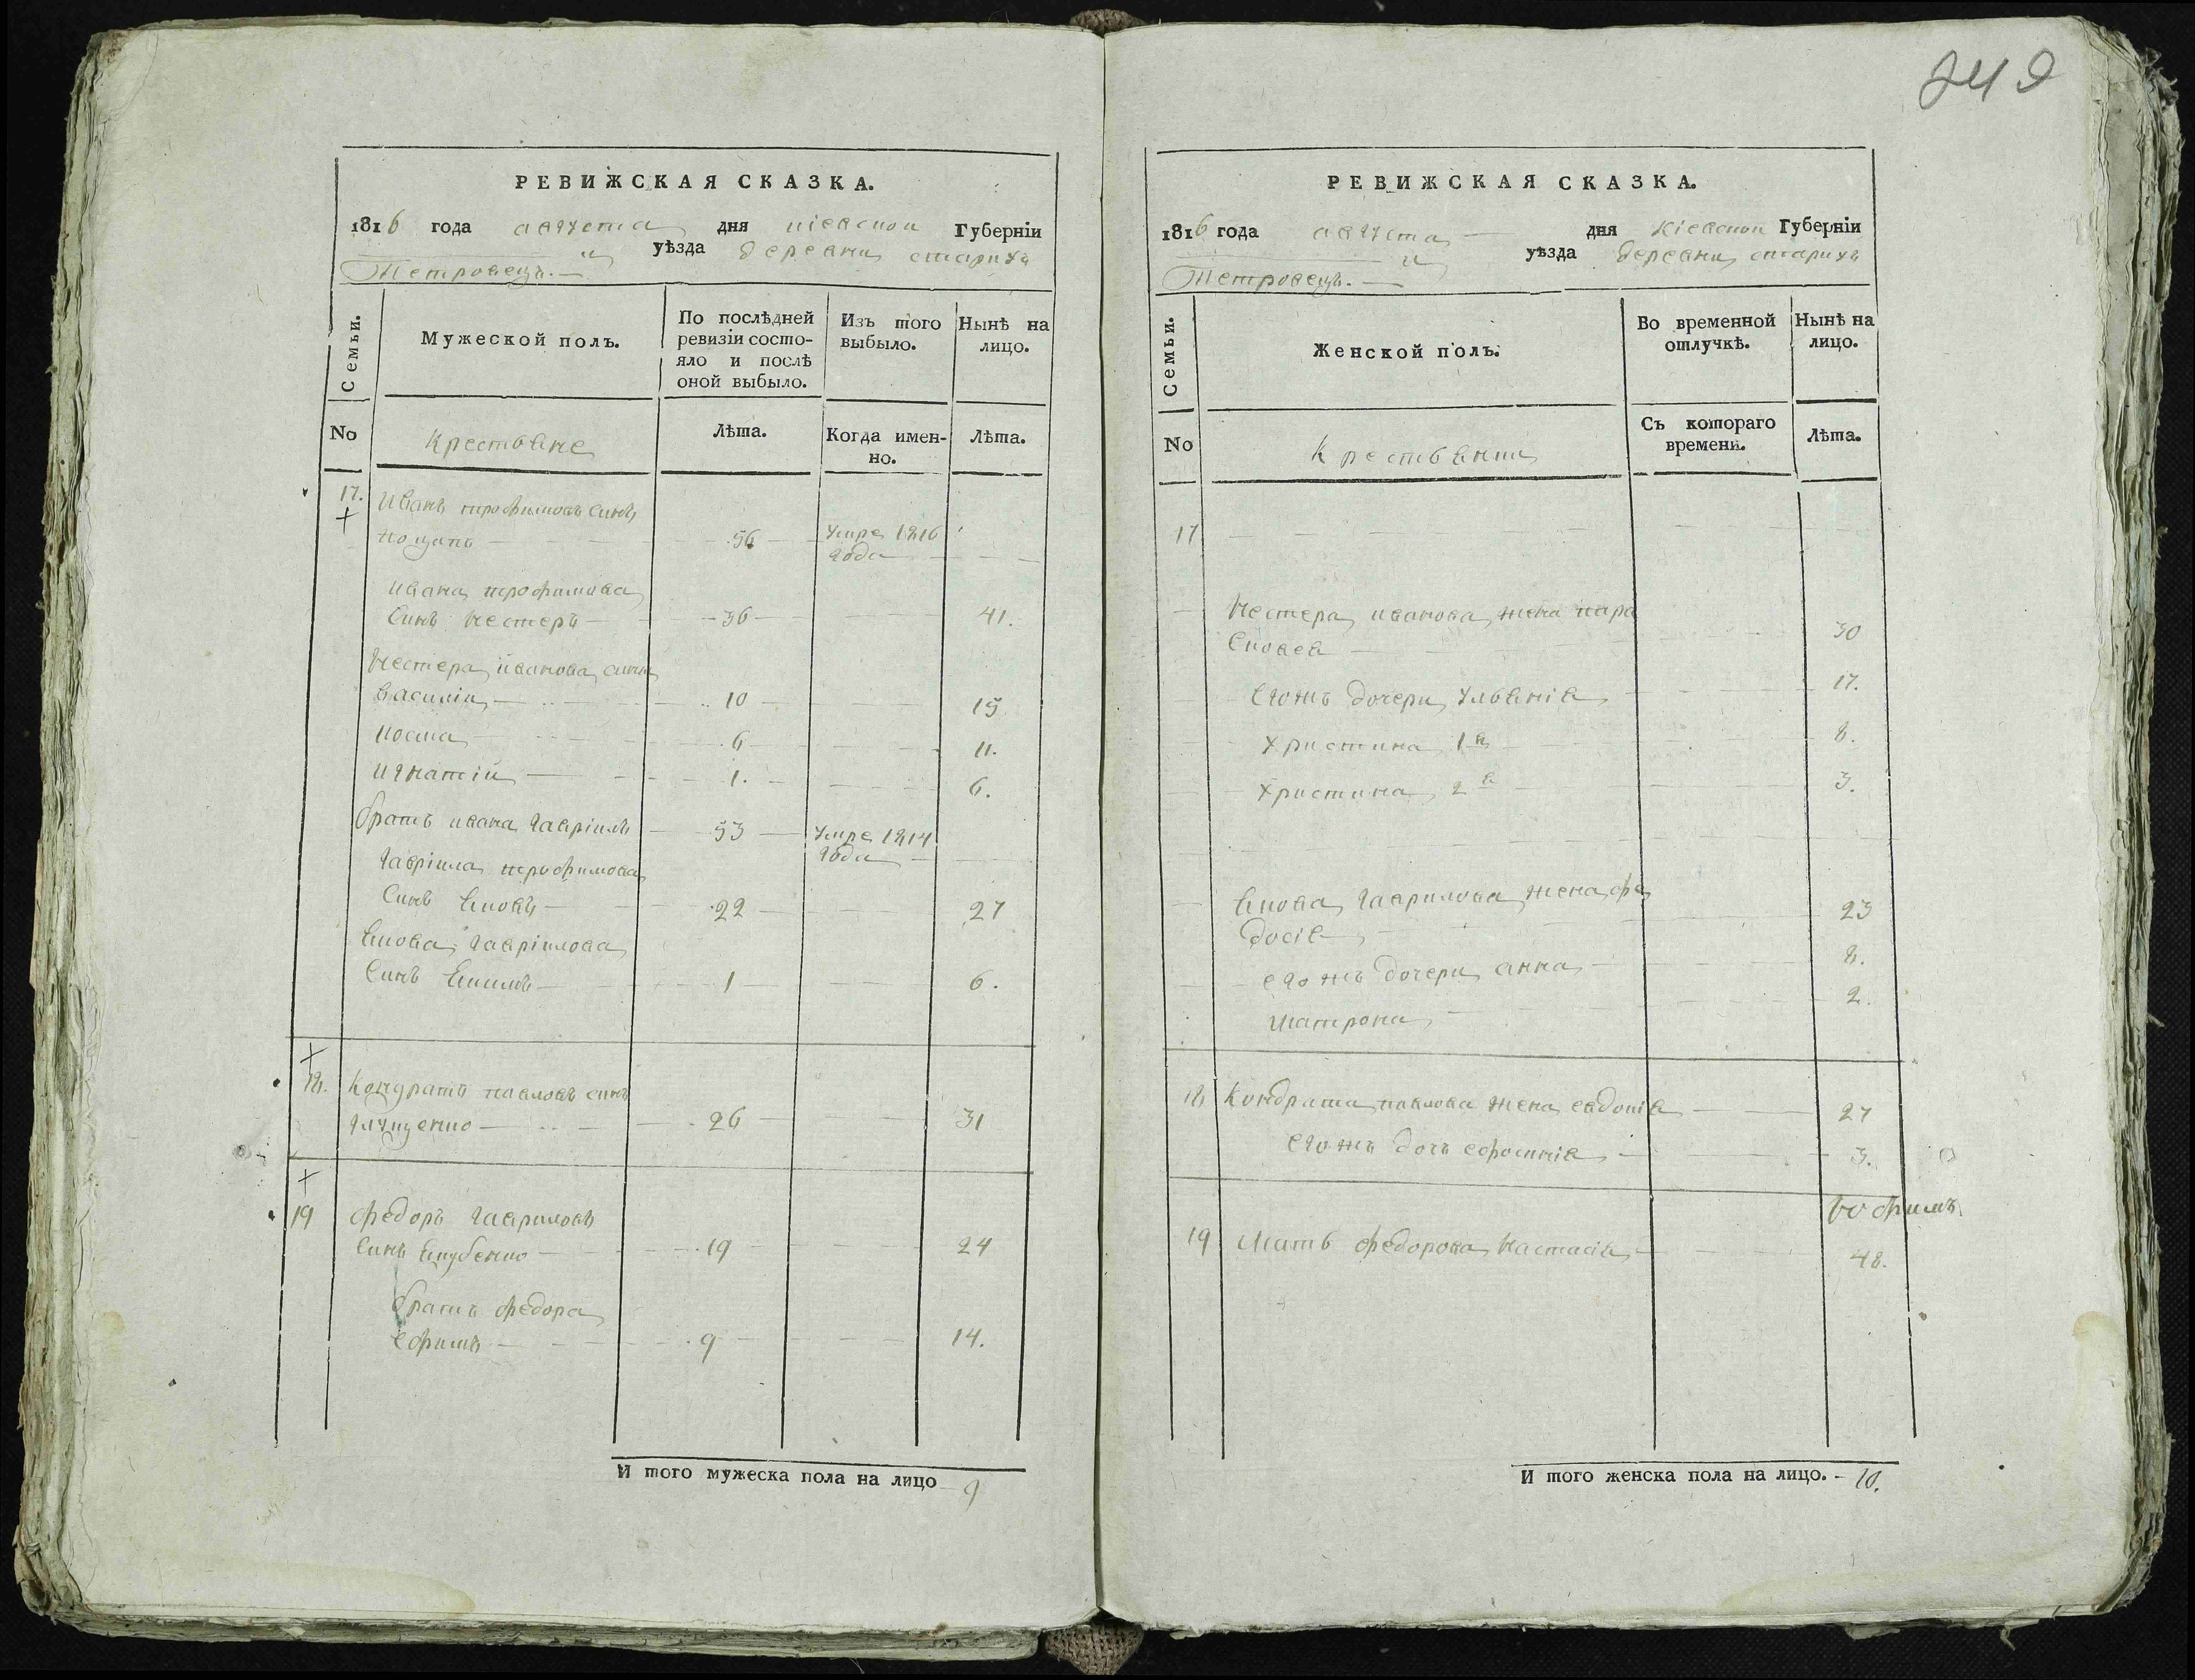 249
РЕВИЖСКАЯ СКАЗКА.
1816 года августа дня кіевской Губерніи
уѣзда деревни старихъ
Петровецъ.
Семьи.
Мужеской полъ.
По послѣдней ревизіи состо-
яло и послѣ
оной выбыло.
Изъ того
выбыло.
Нынѣ на
лицо.
No
крестьяне
Лѣта.
Когда имен-
но.
Лѣта.
17. Иванъ трофимовъ синъ
56 Умре 1816
года
ивана трофимова
синъ нестеръ 36 41.
Нестера иванова сини
василій 10 15
коста 6 11.
игнатій 1. 6.
братъ ивана гавріилъ 53 Умре 1814
года
гавріила трофимова
синъ яковъ 22 27
якова гавріилова
синъ 1 6.
18. Кондратъ павловъ синъ
26 31
19 федоръ гавриловъ
синъ 19 24
братъ федора
ефимъ 9 14.
И того мужеска пола на лицо 9
РЕВИЖСКАЯ СКАЗКА.
1816 года августа дня Кіевской Губерніи
уѣзда деревни старихъ
Петровецъ.
Семьи.
Женской полъ.
Во временной
отлучкѣ.
Нынѣ на
лицо.
No
крестьянки
Съ котораго
времени.
Лѣта.
17
Нестера иванова жена пара
сковея 30
егожъ дочери ульянія 17.
христина 1я 8.
христина 2я 3.
якова гаврилова жена фе
досія 23
егожъ дочери анна 8.
матрона 2.
18 Кондрата павлова жена евдокія 27
егожъ дочь ефросинія 3.
19 Мать федорова настасія 48.
И того женска пола на лицо. - 10.